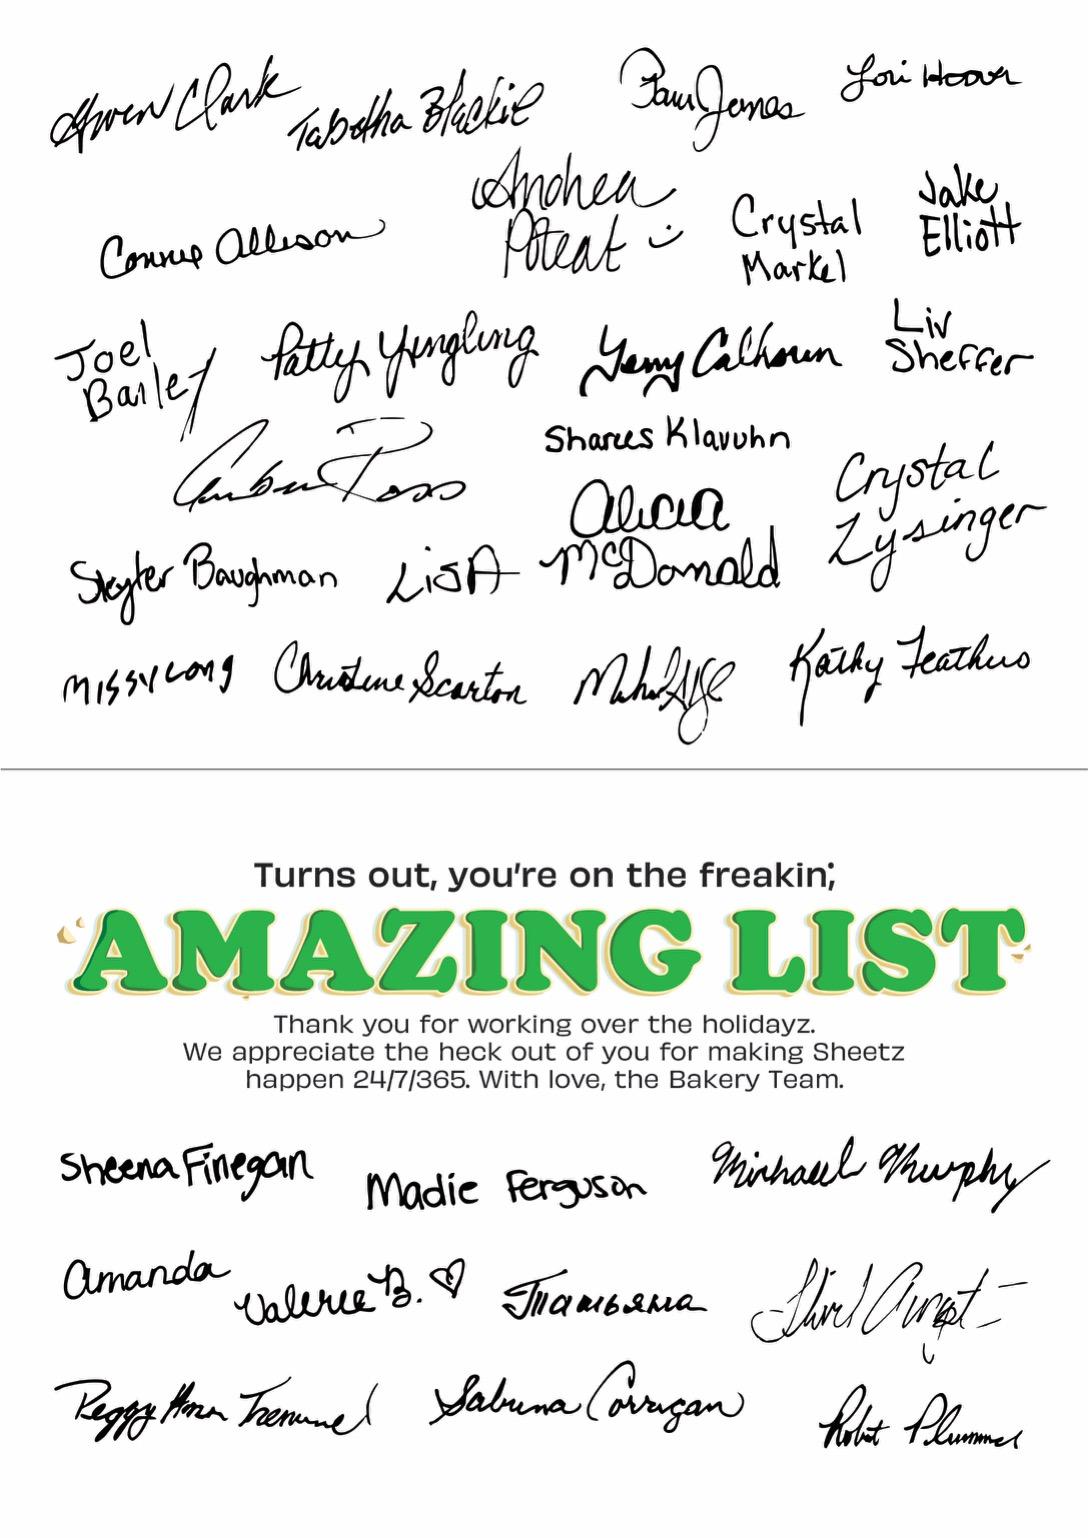 Gwen Clark
Tabatha Blackie
Pam Jones
Lori Hoover
Connie Allison
Andrea
Poteat
Crystal
Markel
Jake
Elliott
Joel
Bailey
Patty Yingling
Jenny Calhoun
Liv
Sheffer
Amber Ross
Klavuhn
Alicia
McDonald
Crystal
Zysinger
Skyler Baughman
LiSA
Missy Long
Christine Scarton
Kathy Feathers
Turns out, you're on the freakin',
AMAZING LIST
Thank you for working over the holidayz.
We appreciate the heck out of you for making Sheetz
happen 24/7/365. With love, the Bakery Team.
Sheena Finegan
Madie Ferguson
Michael Murphy
Amanda
Valerie B.
Татьяна
Peggy Ann Tremmel
Sabrina Corrigan
Robert Plummer